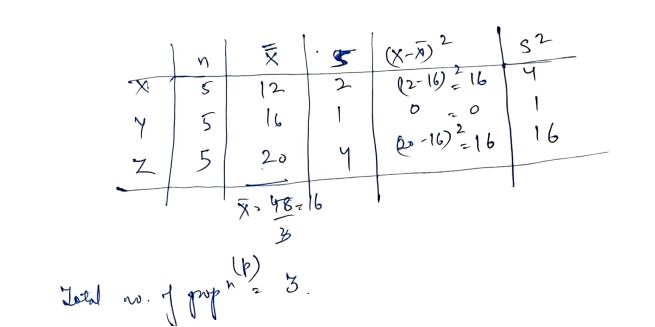 n x̿ S (x-x̄)² S²
X 5 12 2 (2-16)²= 16 4
Y 5 16 1 0 = 0 1
Z 5 20 4 (20-16)²=16 16
x̄ = 48/3 = 16
Total no. of popⁿ (p) = 3.